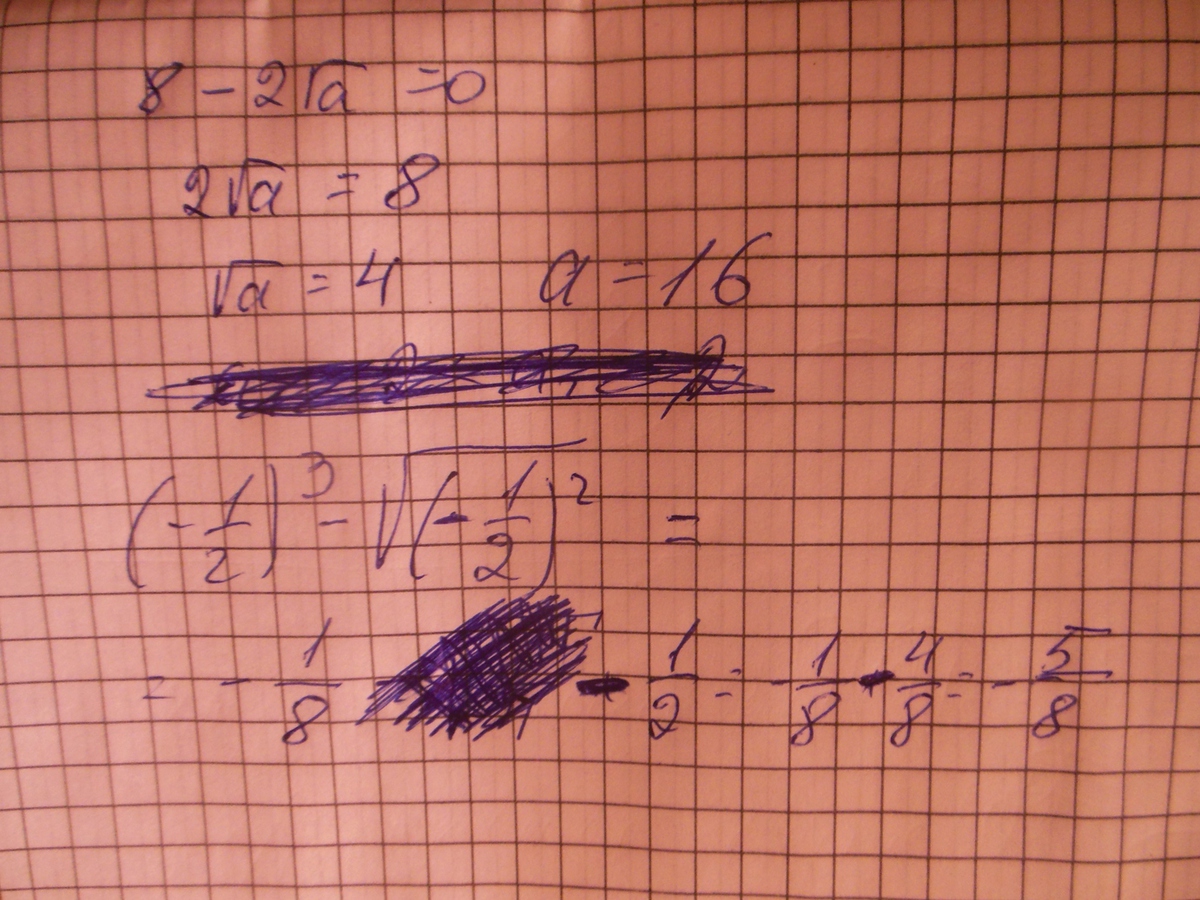 8 - 2√a = 0
2√a = 8
√a = 4 a = 16
(-1/2)³ - √(-1/2)² =
= - 1/8 - 1/2 = - 1/8 - 4/8 = - 5/8